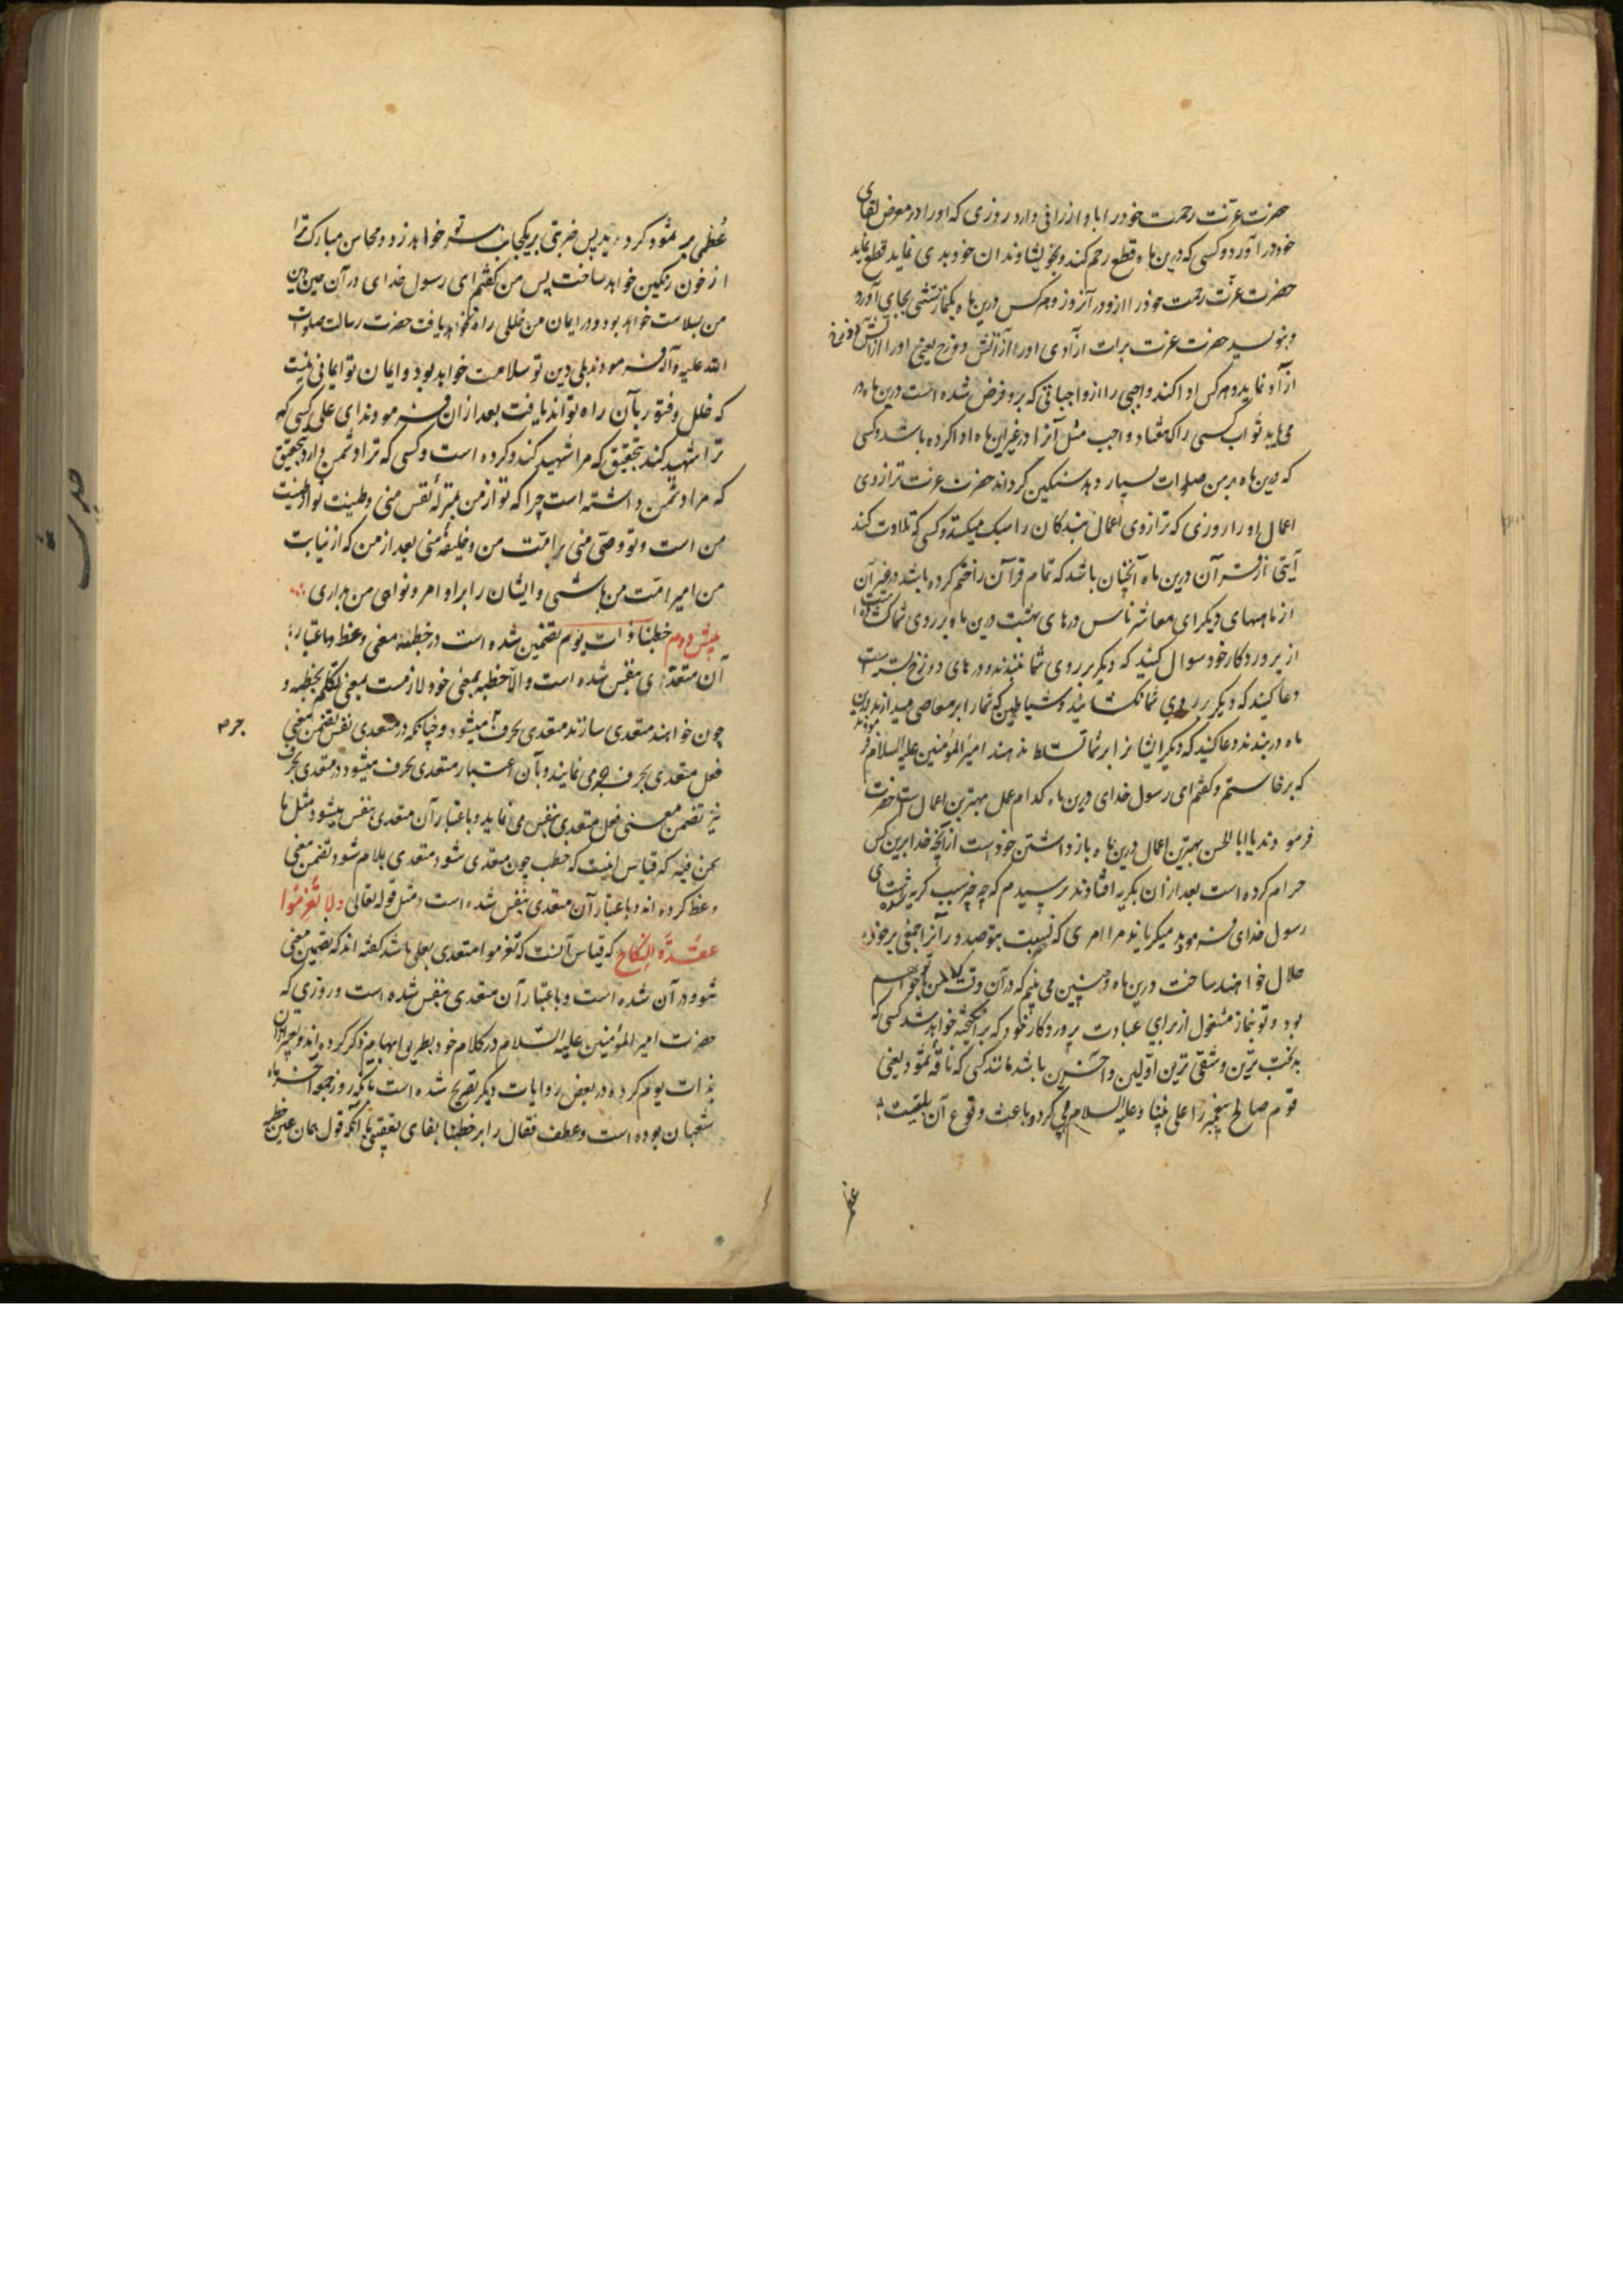 حضرت عزت رحمت خود را با و ارزانی دارد روزی که او را در معرض لقای
خود در آورد و کسی که درین ماه قطع رحم کند و بخویشاوندان خود بدی نماید قطع نماید
حضرت عزت رحمت خود را ازو در آنروز و هر کس درین ماه یکنماز سنتی بجای آورد
و بنویسد حضرت عزت برات آزادی او را از آتش دوزخ یعنی او را از آتش دوزخ
آزاد نماید و هر کس ادا کند واجبی را از واجباتی که برو فرض شده است درین ماه در
می یابد ثواب کسی را که هفتاد واجب مثل آنرا در غیر این ماه ادا کرده باشد و کسی
که درین ماه بر من صلوات بسیار دهد سنگین گرداند حضرت عزت ترازوی
اعمال او را روزی که ترازوی اعمال بندگان را سبک میکند و کسی که تلاوت کند
آیتی از قرآن درین ماه آنچنان باشد که تمام قرآن را ختم کرده باشد در غیر آن
از ماههای دیگر ای معاشر ناس درهای بهشت درین ماه بر روی شما گشاده است
از پروردگار خود سوال کنید که دیگر بر روی شما نبندند و درهای دوزخ بسته است
دعا کنید که دیگر بر روی شما نگشایند و شیاطین که شما را بر معاصی میدارند درین
ماه در بندند دعا کنید که دیگر ایشانرا بر شما تسلط ندهند امیر المؤمنین علیه السلام فرمودند
که برخاستم و گفتم ای رسول خدای درین ماه کدام عمل بهترین اعمال است حضرت
فرمودند یا ابا الحسن بهترین اعمال درین ماه باز داشتن خودست از آنچه خدا برین کس
حرام کرده است بعد از آن بگریه افتادند پرسیدم که چه چیز سبب گریه شماست ای
رسول خدای فرمودند میگریاند مرا امری که نسبت بتو صدور آنرا جمعی بر خود
حلال خواهند ساخت درین ماه و چنین می بینم که در آن وقت
بود و تو بنماز مشغول از برای عبادت پروردگار خود که برانگیخته خواهد شد کسی که
بدبخت ترین و شقی ترین اولین و آخرین باشد مانند کسی که ناقه ثمود یعنی
قوم صالح پیغمبر را علی نبینا و علیه السلام پی کرد و باعث وقوع آن بلیت
عظمی بر ثمود گردید پس ضربتی بر یکجانب سر تو خواهد زد و محاسن مبارک ترا
از خون رنگین خواهد ساخت پس من گفتم ای رسول خدای در آن حین دین
من بسلامت خواهد بود و در ایمان من خللی راه نخواهد یافت حضرت رسالت صلوات
الله علیه و آله فرمودند بلی دین تو سلامت خواهد بود و ایمان تو ایمانی نیست
که خلل و فتور بآن راه تواند یافت بعد از آن فرمودند ای علی کسی که
ترا شهید کند بتحقیق که مرا شهید کند و کرده است و کسی که ترا دشمن دارد بتحقیق
که مرا دشمن داشته است چرا که تو از من بمنزله نفس منی و طینت تو از طینت
من است و تو وصی منی بر امت من و خلیفه منی بعد از من که از نیابت
من امیر امت من باشی و ایشان را بر اوامر و نواهی من بداری
خطبنا ذات یوم تضمین شده است در خطبه معنی وعظ و باعتبار
آن متعدی بنفس شده است و الا خطبه بمعنی خود لازمست بمعنی تکلم بخطبه و
چون خواهند متعدی سازند متعدی بحرف میشود و چنانکه در متعدی بنفس تضمن معنی
فعل متعدی بحرف جر می نمایند و بآن اعتبار متعدی بحرف میشود در متعدی بحرف
نیز تضمن معنی فعل متعدی بنفس می نماید و باعتبار آن متعدی بنفس میشود مثل ما
نحن فیه که قیاس اینست که خطب چون متعدی شود متعدی بلام شود تضمن معنی
وعظ کرده اند و باعتبار آن متعدی بنفس شده است و مثل قوله تعالی ولا تعزموا
عقدة النکاح که قیاس آنست که تعزموا متعدی بعلی باشد گفته اند که تضمین معنی
تنووا در آن شده است و باعتبار آن متعدی بنفس شده است و روزی که
حضرت امیر المؤمنین علیه السلام در کلام خود بطریق ابهام ذکر کرده اند و تعبیر از آن
بذات یوم کرده در بعض روایات دیگر تصریح شده است بآنکه روز جمعه آخر ماه
شعبان بوده است و عطف فقال را بر خطبنا بفای تعقیبی با آنکه قول همان عین خطبه